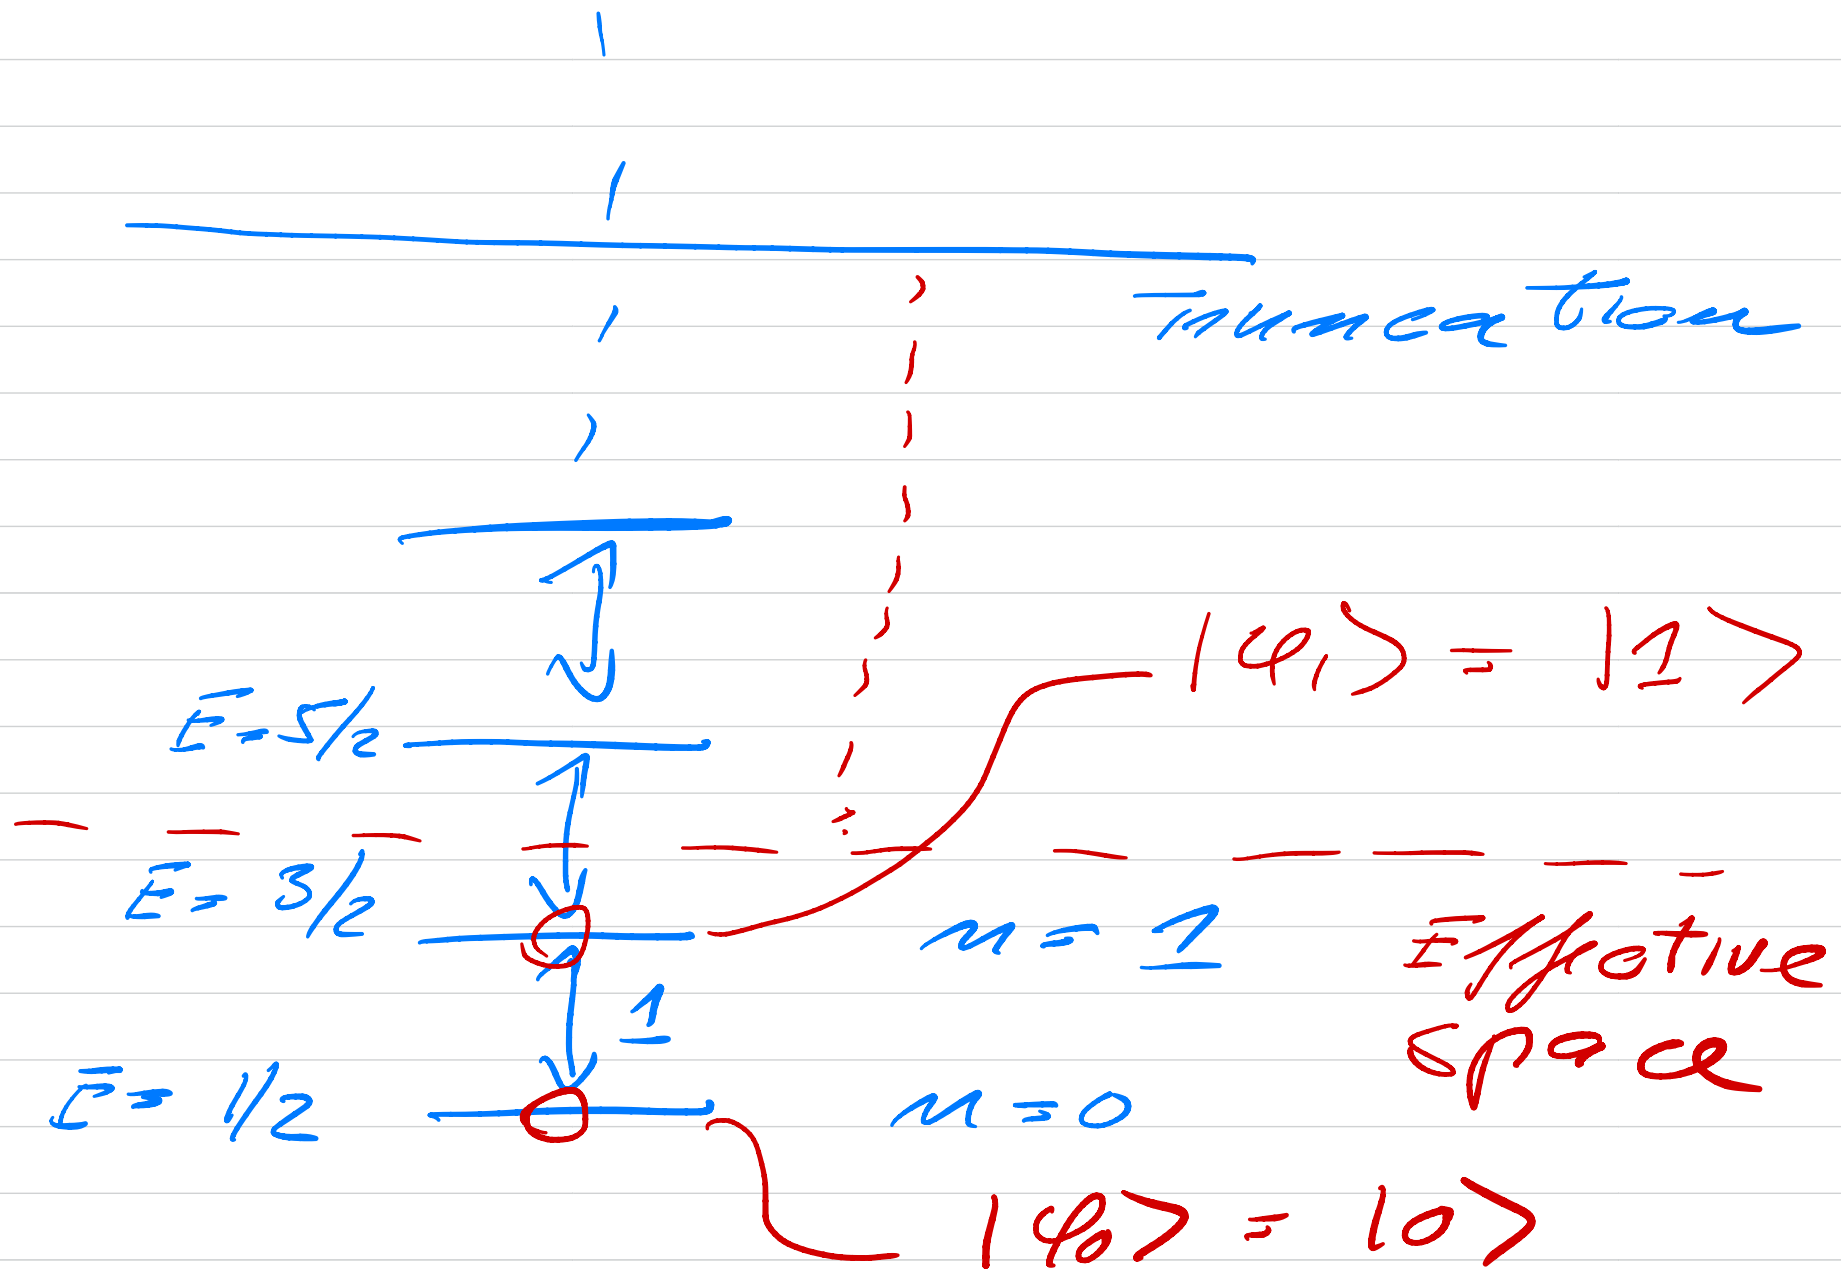 Truncation
|φ₁⟩ = |1⟩
E = 5/2
E = 3/2
n = 1
Effective
space
1
E = 1/2
n = 0
|φ₀⟩ = |0⟩